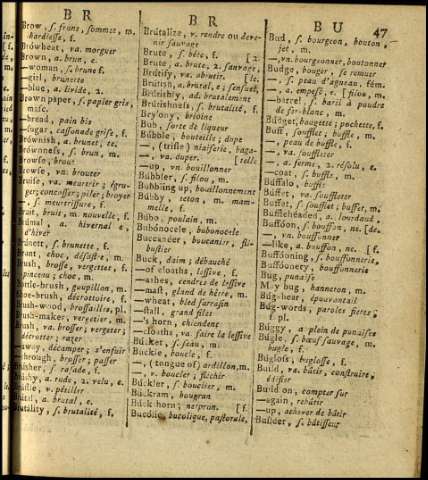 BR
BR
BU
47
Brow, s. front, sommet, m.
hardiesse, f.
Browheat, va. morguer
Brown, a. brun, e.
—woman, s. brune f.
—girl, brunette
—blue, a. livide, 2.
Brown paper, s. papier gris,
—bread, pain bis
—sugar, cassonade grise, f.
Brównish, a. brunet, te.
Brownness, s. brun, m.
Browse, brout
Browse, va. brouter
Bruise, va. meurtrir; égru-
ger; concasser; piler; broyer
—, s. meurtrissure, f.
Bruit, bruit, m. nouvelle, f.
Brumal, a. hivernal, e
d'hiver
Brunett, s. brunette, f.
Brunt, choc, désastre, m.
Brush, brosse, vergettes, f.
pinceau; choc, m.
Bottle-brush, goupillon, m.
Shoe-brush, décrottoire, f.
Brush-wood, brossailles, pl.
Brush-maker, vergetier, m.
Brush, va. brosser; vergeter;
décrotter; raser
—away, décamper; s'enfuir
—through, brosser; passer
Brusher, s. rasade, f.
Brushy, a. rude, 2. velu, e.
va. pétiller
a. brutal, e.
Brutality, s. brutalité, f.
Brútalize, v. rendre ou deve-
nir sauvage
Brute, s. bête, f. [2.
Brute, a. brute, 2. sauvage,
Brútify, va. abrutir, [le.
Brútish, a. brutal, e; sensuel,
Brútishly, ad. brutalement
Brútishness, s. brutalité, f.
Bry'ony, brioine
Bub, sorte de liqueur
Bubble, bouteille; dupe
—, (trifle) niaiserie, baga-
—, va. duper. [telle
—up, vn. bouillonner
Búbbler, s. filou, m.
Bubbling up, bouillonnement
Búbby, teton, m. mam-
melle, f.
Búbo, poulain, m.
Bubónocele, bubonocele
Buccanéer, boucanier, fli-
bustier
Buck, daim; débauché
—of cloaths, lessive, f.
—ashes, cendres de lessive
—mast, gland de hêtre, m.
—wheat, bled sarrasin
—stall, grand filet
—'s horn, chiendent
—cloaths, va. faire la lessive
Búcket, s. seau, m.
Búckle, boucle, f.
—, (tongue of) ardillon, m.
—, v. boucler; fléchir
Búckler, s. bouclier, m.
Búckram, bougran
Búck'horn; nerprun. [f.
Bucólic, bucolique, pastorale,
Bud, s. bourgeon, bouton,
jet, m.
—, vn. bourgeonner, boutonner
Budge, bouger, se remuer
—, s. peau d'agneau, fém.
—, a. empesé, e. [filou, m.
—barrel, s. baril à poudre
de fer-blanc, m.
Búdget, baugette; pochette, f.
Buff, soufflet; buffle, m.
—, peau de buffle, f.
—, va. souffleter
—, a. ferme, 2. résolu, e.
—coat, s. buffle, m.
Búffalo, buffle
Búffet, va. souffleter
Búffet, s. soufflet, buffet, m.
Búffleheaded, a. lourdaud,
Buffóon, s. bouffon, ne. [de.
—, va. bouffonner
—like, a. bouffon, ne. [f.
Buffóoning, s. bouffonnerie,
Buffóonery, bouffonnerie
Bug, punaise
May bug, hanneton, m.
Búg-bear, épouvantail
Búg-words, paroles fieres,
f. pl.
Búggy, a plein de punaises
Búgle, s. bœuf sauvage, m.
bugle, f.
Búgloss, buglosse, f.
Build, va. bâtir, construire,
édifier
Build on, compter sur
—again, rebâtir
—up, achever de bâtir
Búilder, s. bâtisseur